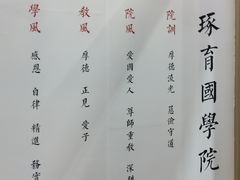 琢育國學院
院訓
厚德流光 慈儉守道
院風
愛國愛人 尊師重教
教風
厚德 正見 愛子
學風
感恩 自律 精進 務實